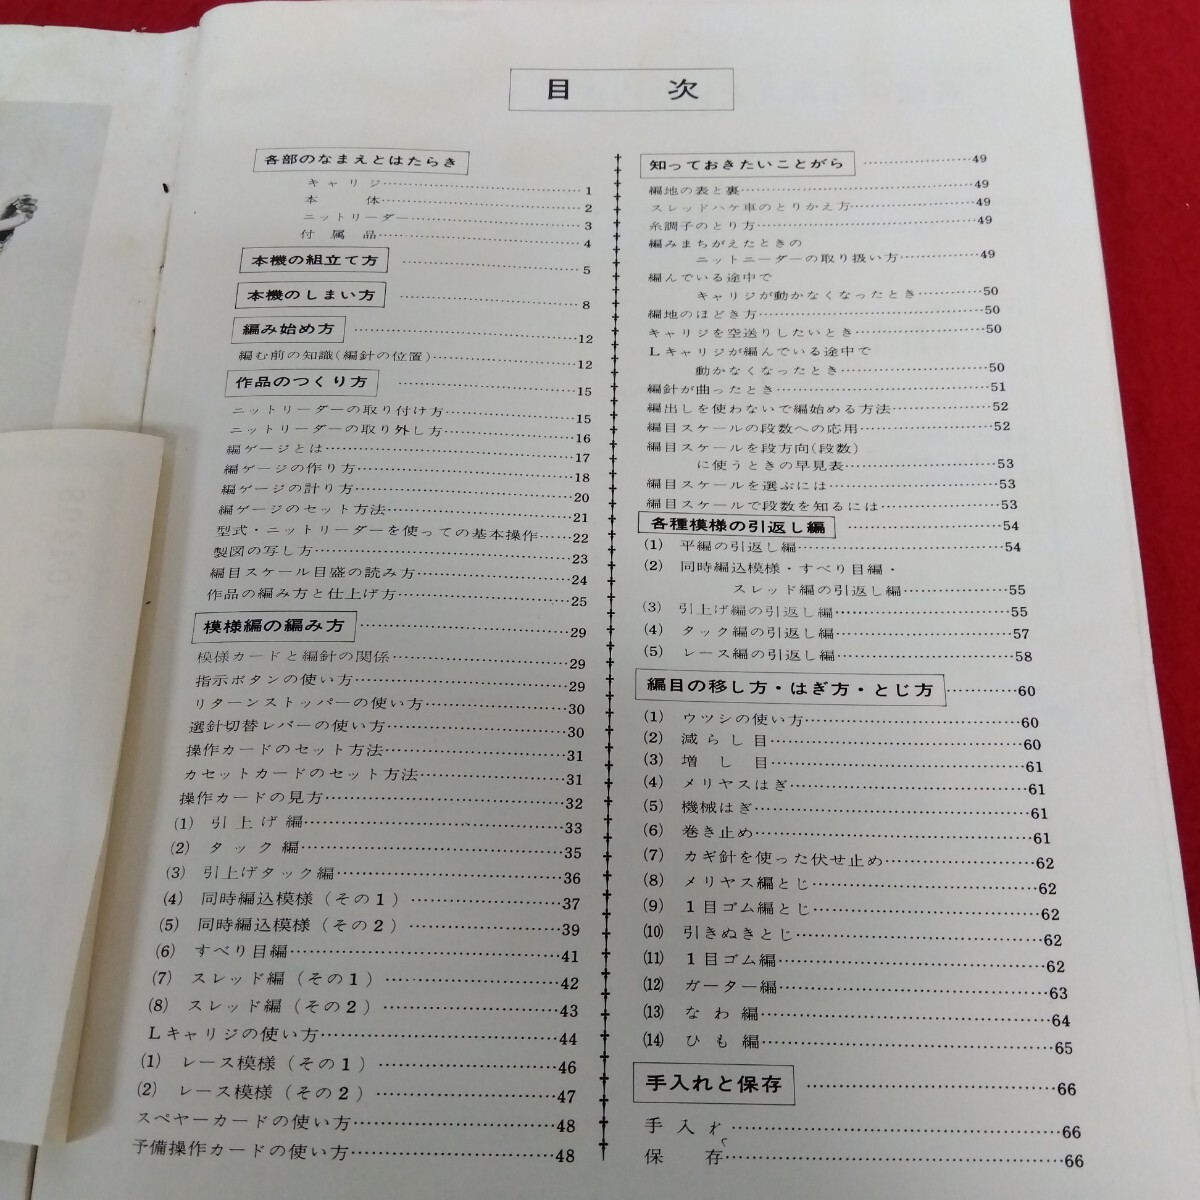 目　次
各部のなまえとはたらき
キャリジ……1
本　体……2
ニットリーダー……3
付属品……4
本機の組立て方……5
本機のしまい方……8
編み始め方……12
編む前の知識(編針の位置)……12
作品のつくり方……15
ニットリーダーの取り付け方……15
ニットリーダーの取り外し方……16
編ゲージとは……17
編ゲージの作り方……18
編ゲージの計り方……20
編ゲージのセット方法……21
型式・ニットリーダーを使っての基本操作……22
製図の写し方……23
編目スケール目盛の読み方……24
作品の編み方と仕上げ方……25
模様編の編み方……29
模様カードと編針の関係……29
指示ボタンの使い方……29
リターンストッパーの使い方……30
選針切替レバーの使い方……30
操作カードのセット方法……31
カセットカードのセット方法……31
操作カードの見方……32
(1) 引上げ編……33
(2) タック編……35
(3) 引上げタック編……36
(4) 同時編込模様(その1)……37
(5) 同時編込模様(その2)……39
(6) すべり目編……41
(7) スレッド編(その1)……42
(8) スレッド編(その2)……43
Lキャリジの使い方……44
(1) レース模様(その1)……46
(2) レース模様(その2)……47
スペヤーカードの使い方……48
予備操作カードの使い方……48
知っておきたいことがら……49
編地の表と裏……49
スレッドハケ車のとりかえ方……49
糸調子のとり方……49
編みまちがえたときの
ニットニーダーの取り扱い方……49
編んでいる途中で
キャリジが動かなくなったとき……50
編地のほどき方……50
キャリジを空送りしたいとき……50
Lキャリジが編んでいる途中で
動かなくなったとき……50
編針が曲ったとき……51
編出しを使わないで編始める方法……52
編目スケールの段数への応用……52
編目スケールを段方向(段数)
に使うときの早見表……53
編目スケールを選ぶには……53
編目スケールで段数を知るには……53
各種模様の引返し編……54
(1) 平編の引返し編……54
(2) 同時編込模様・すべり目編・
スレッド編の引返し編……55
(3) 引上げ編の引返し編……55
(4) タック編の引返し編……57
(5) レース編の引返し編……58
編目の移し方・はぎ方・とじ方……60
(1) ウツシの使い方……60
(2) 減らし目……60
(3) 増し目……61
(4) メリヤスはぎ……61
(5) 機械はぎ……61
(6) 巻き止め……61
(7) カギ針を使った伏せ止め……62
(8) メリヤス編とじ……62
(9) 1目ゴム編とじ……62
(10) 引きぬきとじ……62
(11) 1目ゴム編……62
(12) ガーター編……63
(13) なわ編……64
(14) ひも編……65
手入れと保存……66
手入れ……66
保　存……66